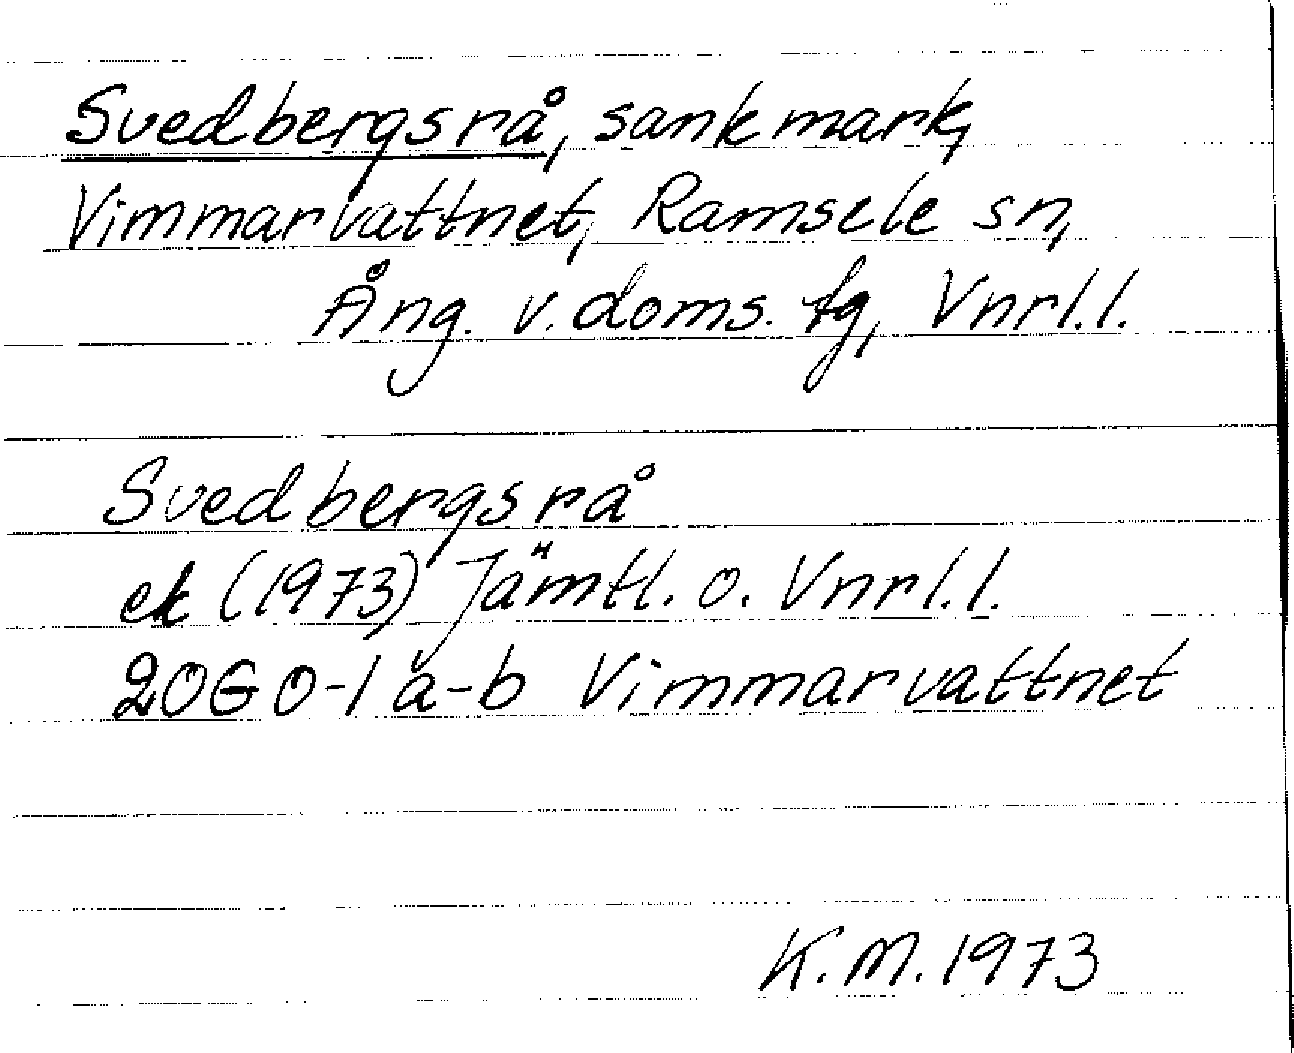 Svedbergsrå, sankmark,
Vimmarvattnet, Ramsele sn,
Ång. v. doms. tg, Vnrl.l.
Svedbergsrå
ek (1973) Jämtl. o. Vnrl.l.
20G 0-1 a-b Vimmarvattnet
K.M. 1973